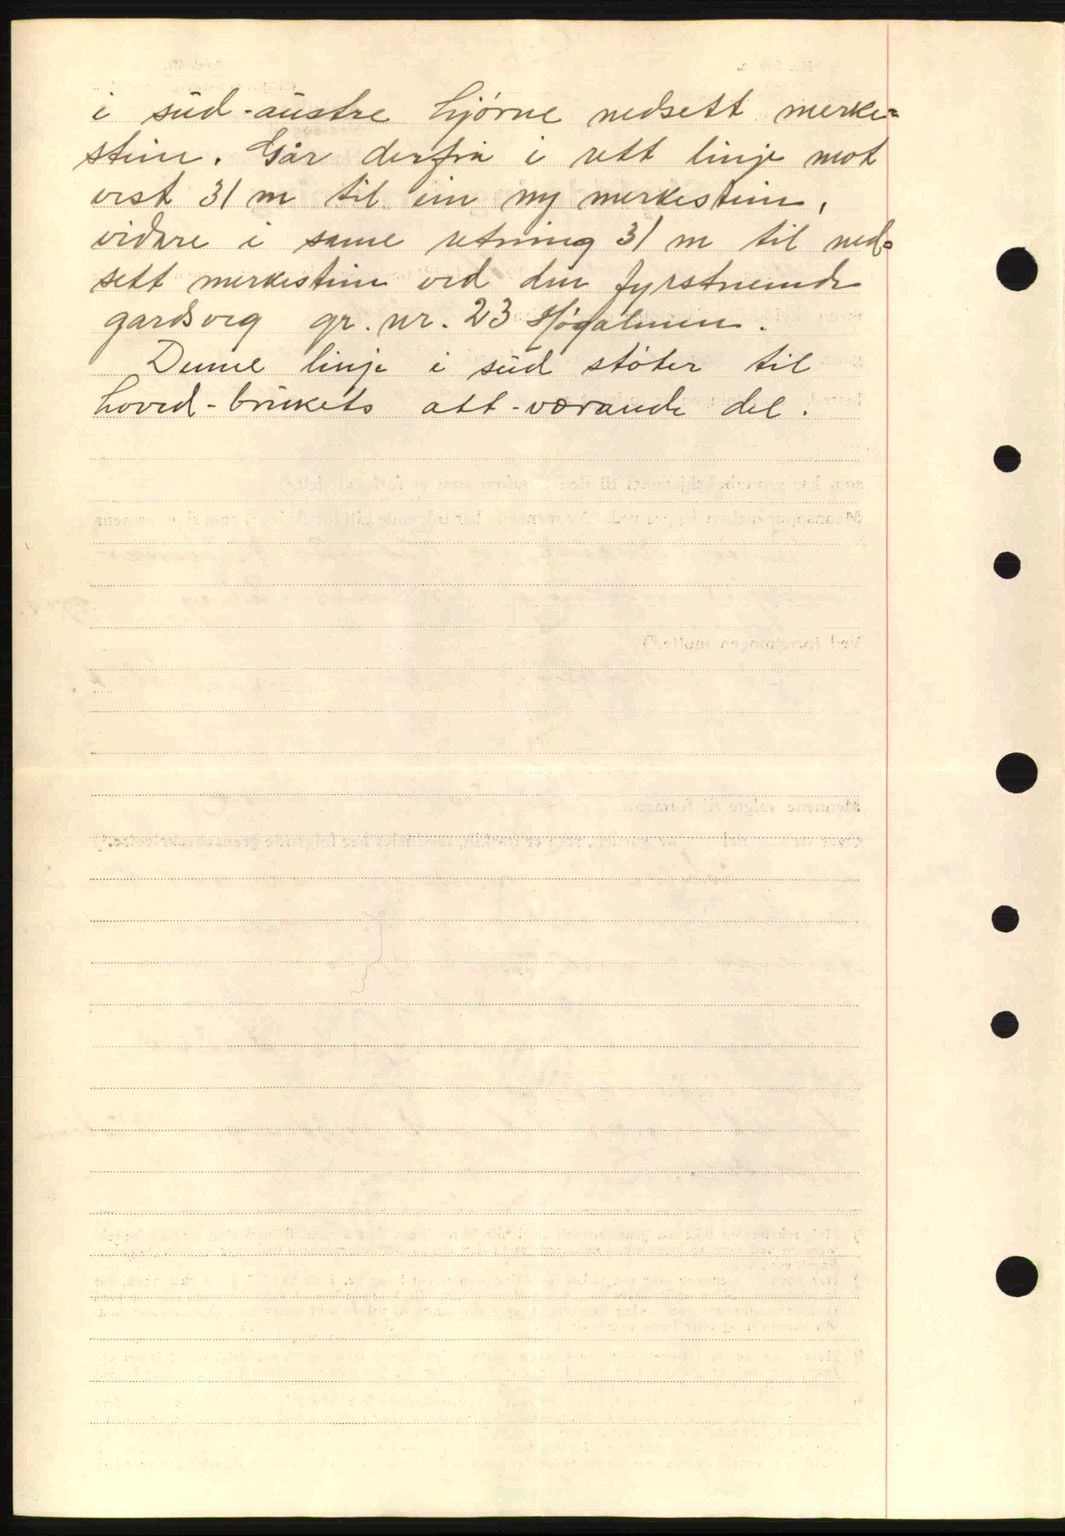 i süd-aüstre hjørne nedsett merke=
stein. Går derfrå i rett linje mot
vest 31 m til ein ny merkestein,
vidare i same retning 31 m til ned=
sett merkestein ved den fyrstnemnde
gardsveg gr. nr. 23 Høgalmen.
Denne linje i süd støter til
hoved-brükets att-værande del.